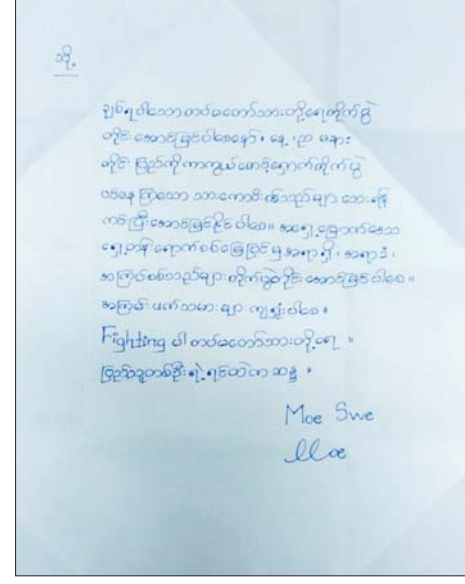 သို့
ချစ်ရပါသောတပ်မတော်သားတို့ရေတိုက်ပွဲ
တိုင်းအောင်မြင်ပါစေနော်။ နေ့၊ ည မနား
တိုင်းပြည်ကိုကာကွယ်စောင့်ရှောက်တိုက်ပွဲ
ဝင်နေကြသော သားကောင်းရတနာများဘေးရန်
ကင်းပြီးအောင်မြင်နိုင်ပါစေ။ အရှေ့မြောက်ဒေသ
ရှေ့တန်းရောက်စစ်မြေပြင်မှအရာရှိ၊ အရာခံ၊
အကြပ်စစ်သည်များတိုက်ပွဲတိုင်းအောင်မြင်ပါစေ။
အကြမ်းဖက်သမားများကျရှုံးပါစေ။
Fighting ပါတပ်မတော်သားတို့ရေ။
ပြည်သူတစ်ဦးရဲ့ရင်ထဲကဆန္ဒ။
Moe Swe
Moe